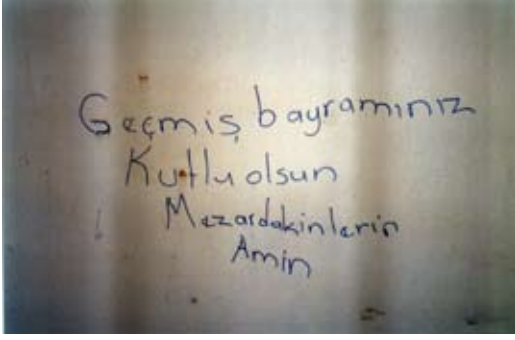 Geçmiş bayramınız
Kutlu olsun
Mezardakinlerin
Amin